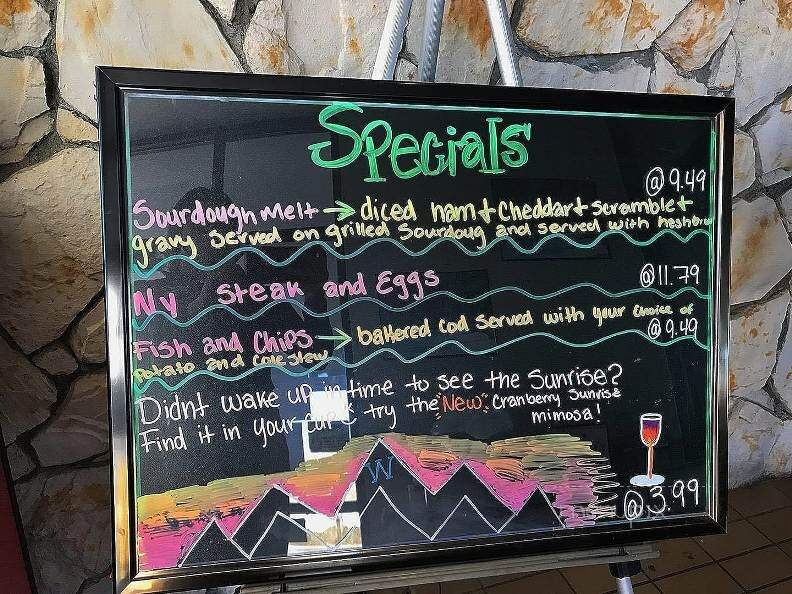 Specials
@ 9.49
Sourdough Melt → diced ham + Cheddar + Scramble +
gravy served on grilled Sourdoug and served with heshbrow
Ny Steak and Eggs @ 11.79
Fish and Chips → battered Cod Served with your Choice of
Potato and Cole Slew @ 9.49
Didnt wake up in time to see the Sunrise?
Find it in your cup & try the New: Cranberry Sunrise
mimosa!
W
@ 3.99